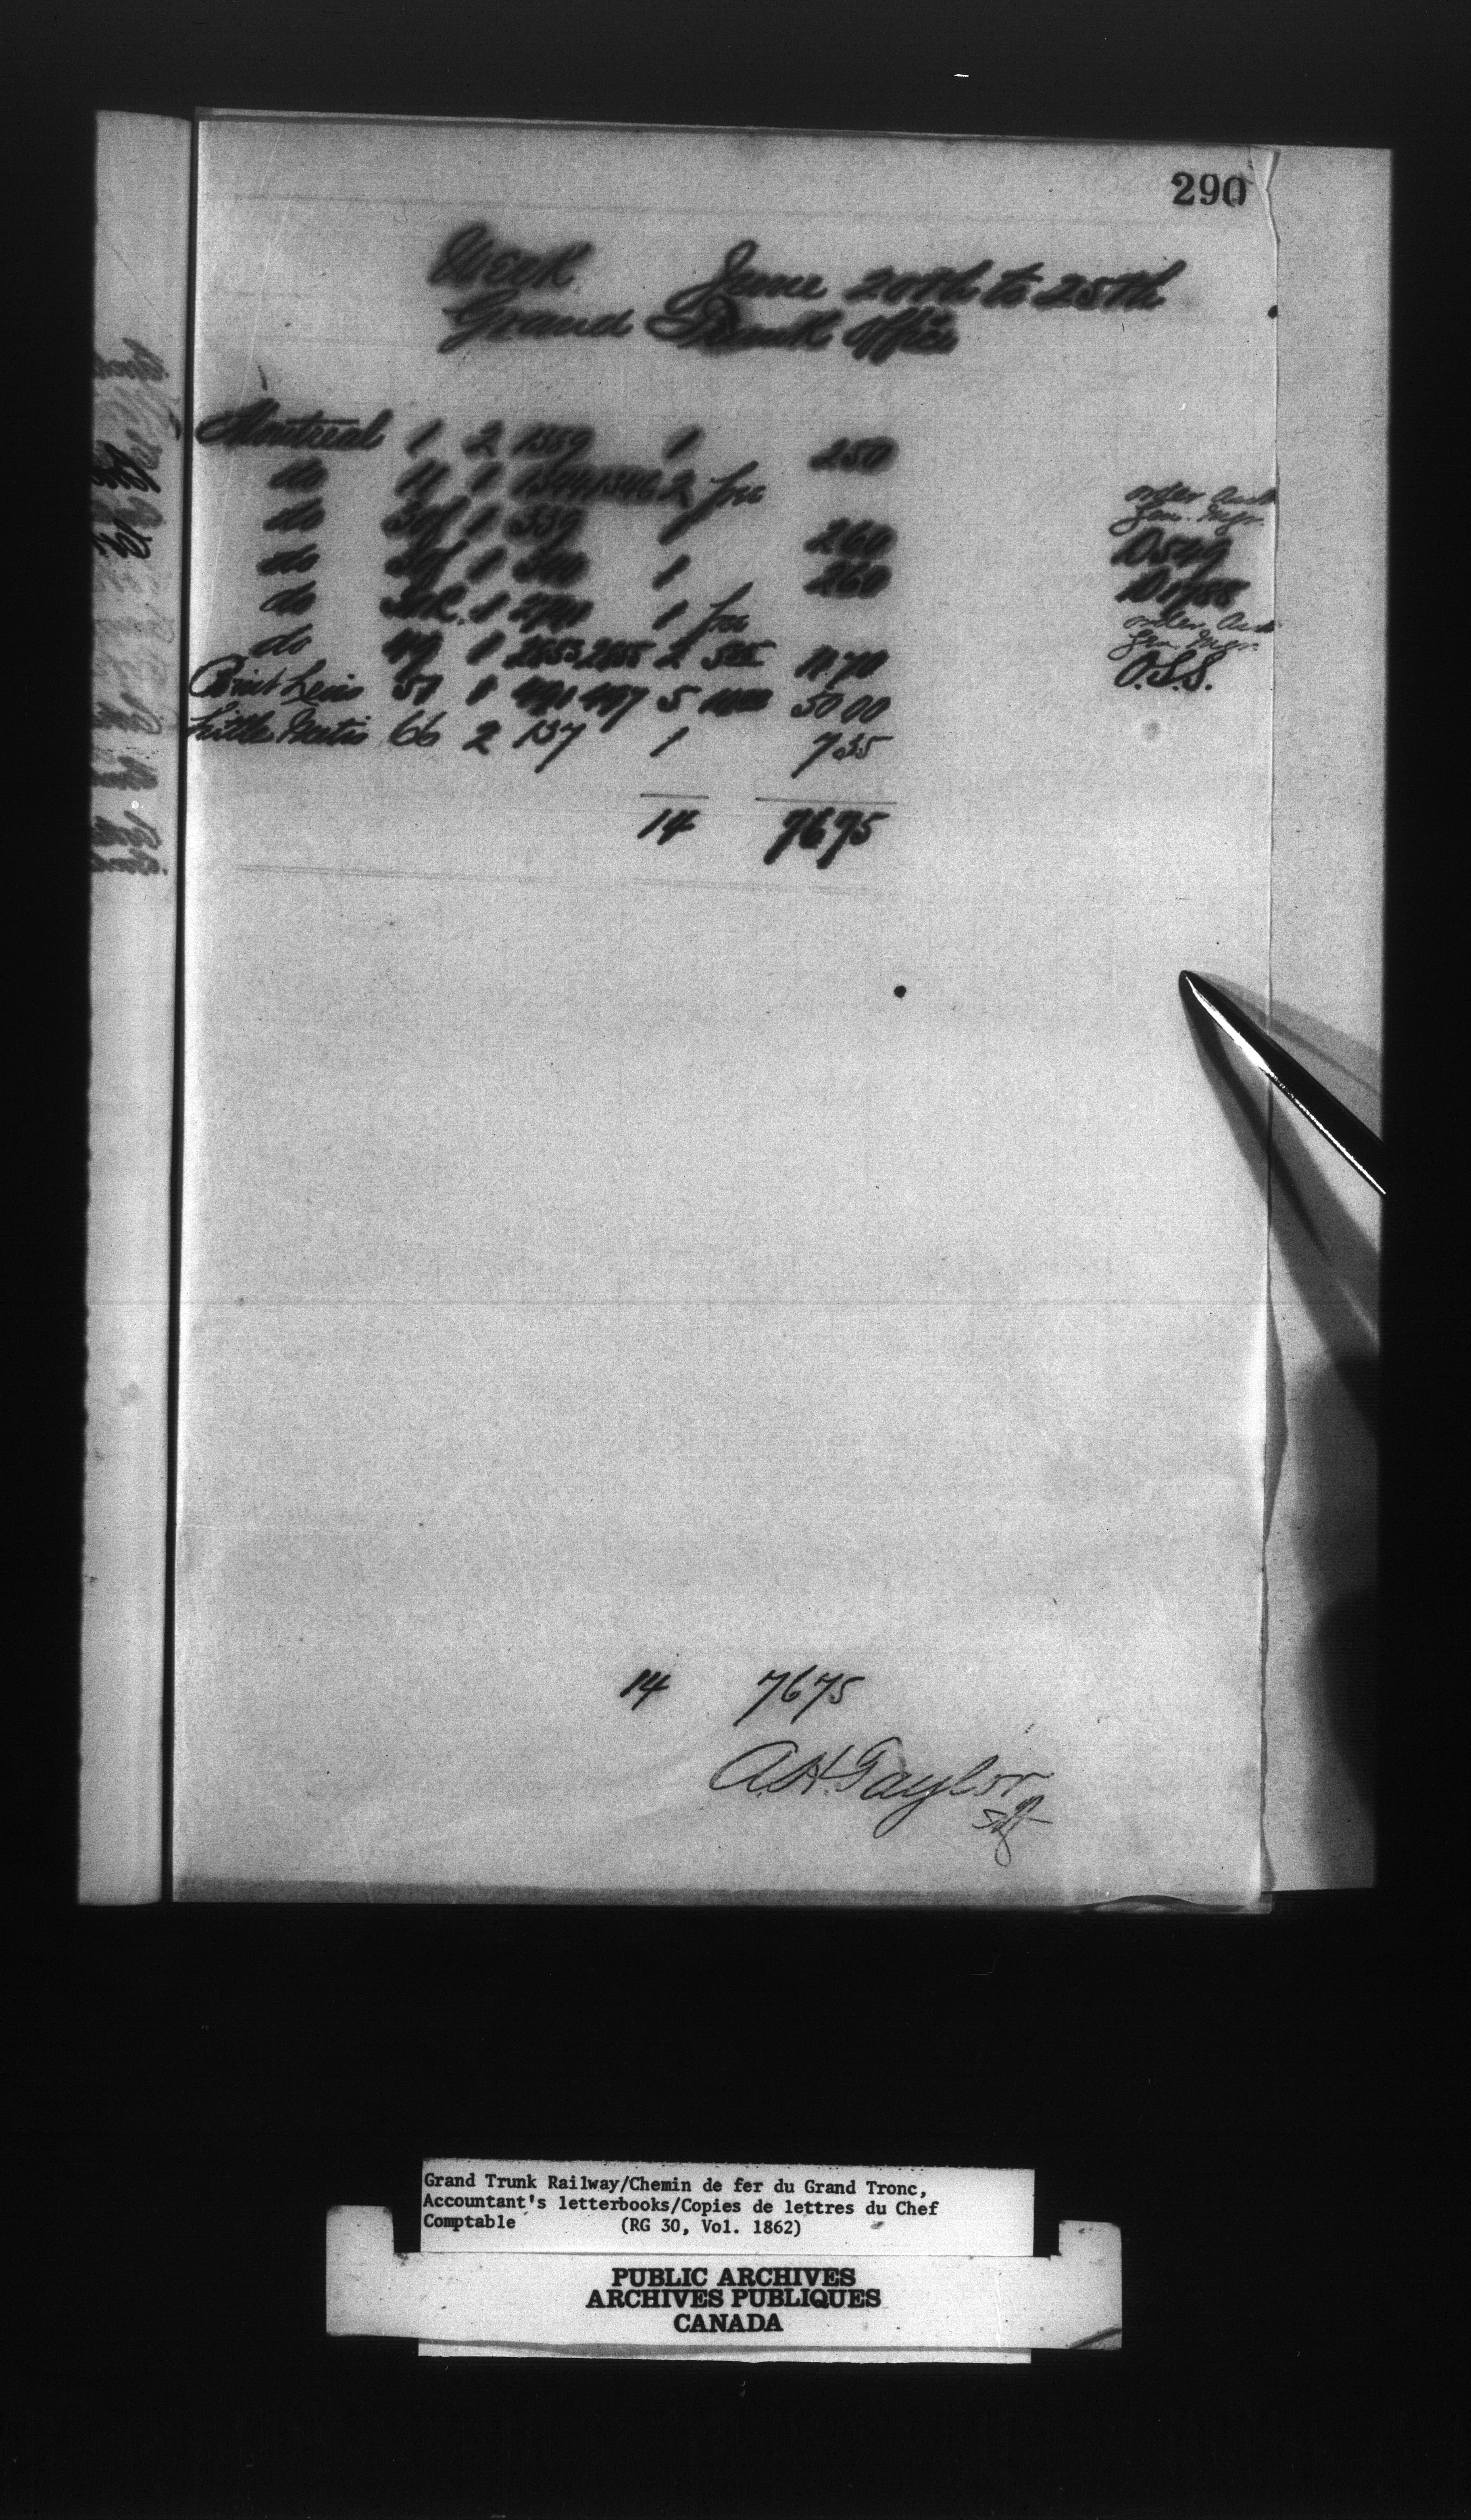 290
Week June 20th to 25th
Grand Trunk Office
Montreal 1 2 1359 1 250
do 11 1 1344 1346 2 free order Aud Gen. Mgr.
do 1 339 1 260 D549
do 1 340 1 260
do 1 2741 1 free order Aud Gen Mgr.
do 49 1 2653 2655 2 11.70 O.S.S.
Point Levis 51 1 491 497 5 50 00
Little Metis 66 2 137 1 7 35
14 7675
14 7675
A.H. Taylor
Grand Trunk Railway/Chemin de fer du Grand Tronc,
Accountant's letterbooks/Copies de lettres du Chef
Comptable (RG 30, Vol. 1862)
PUBLIC ARCHIVES
ARCHIVES PUBLIQUES
CANADA